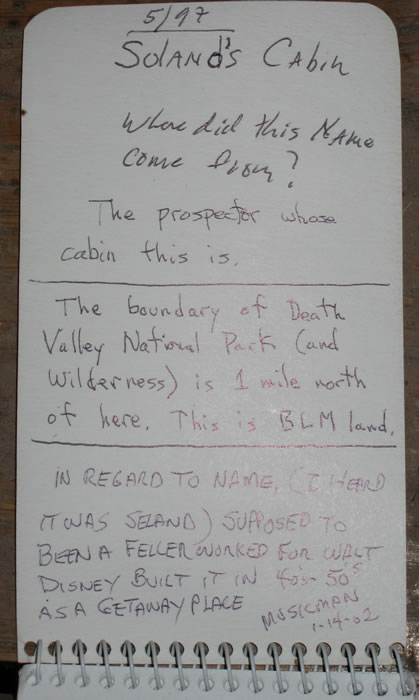 5/97
Soland's Cabin
Where did this Name
come from?
The prospector whose
cabin this is.
The boundary of Death
Valley National Park (and
Wilderness) is 1 mile north
of here. This is BLM land.
IN REGARD TO NAME, (I HEARD
IT WAS SELAND) SUPPOSED TO
BEEN A FELLER WORKED FOR WALT
DISNEY BUILT IT IN 40s-50s
AS A GETAWAY PLACE
MUSICMAN
1-14-02